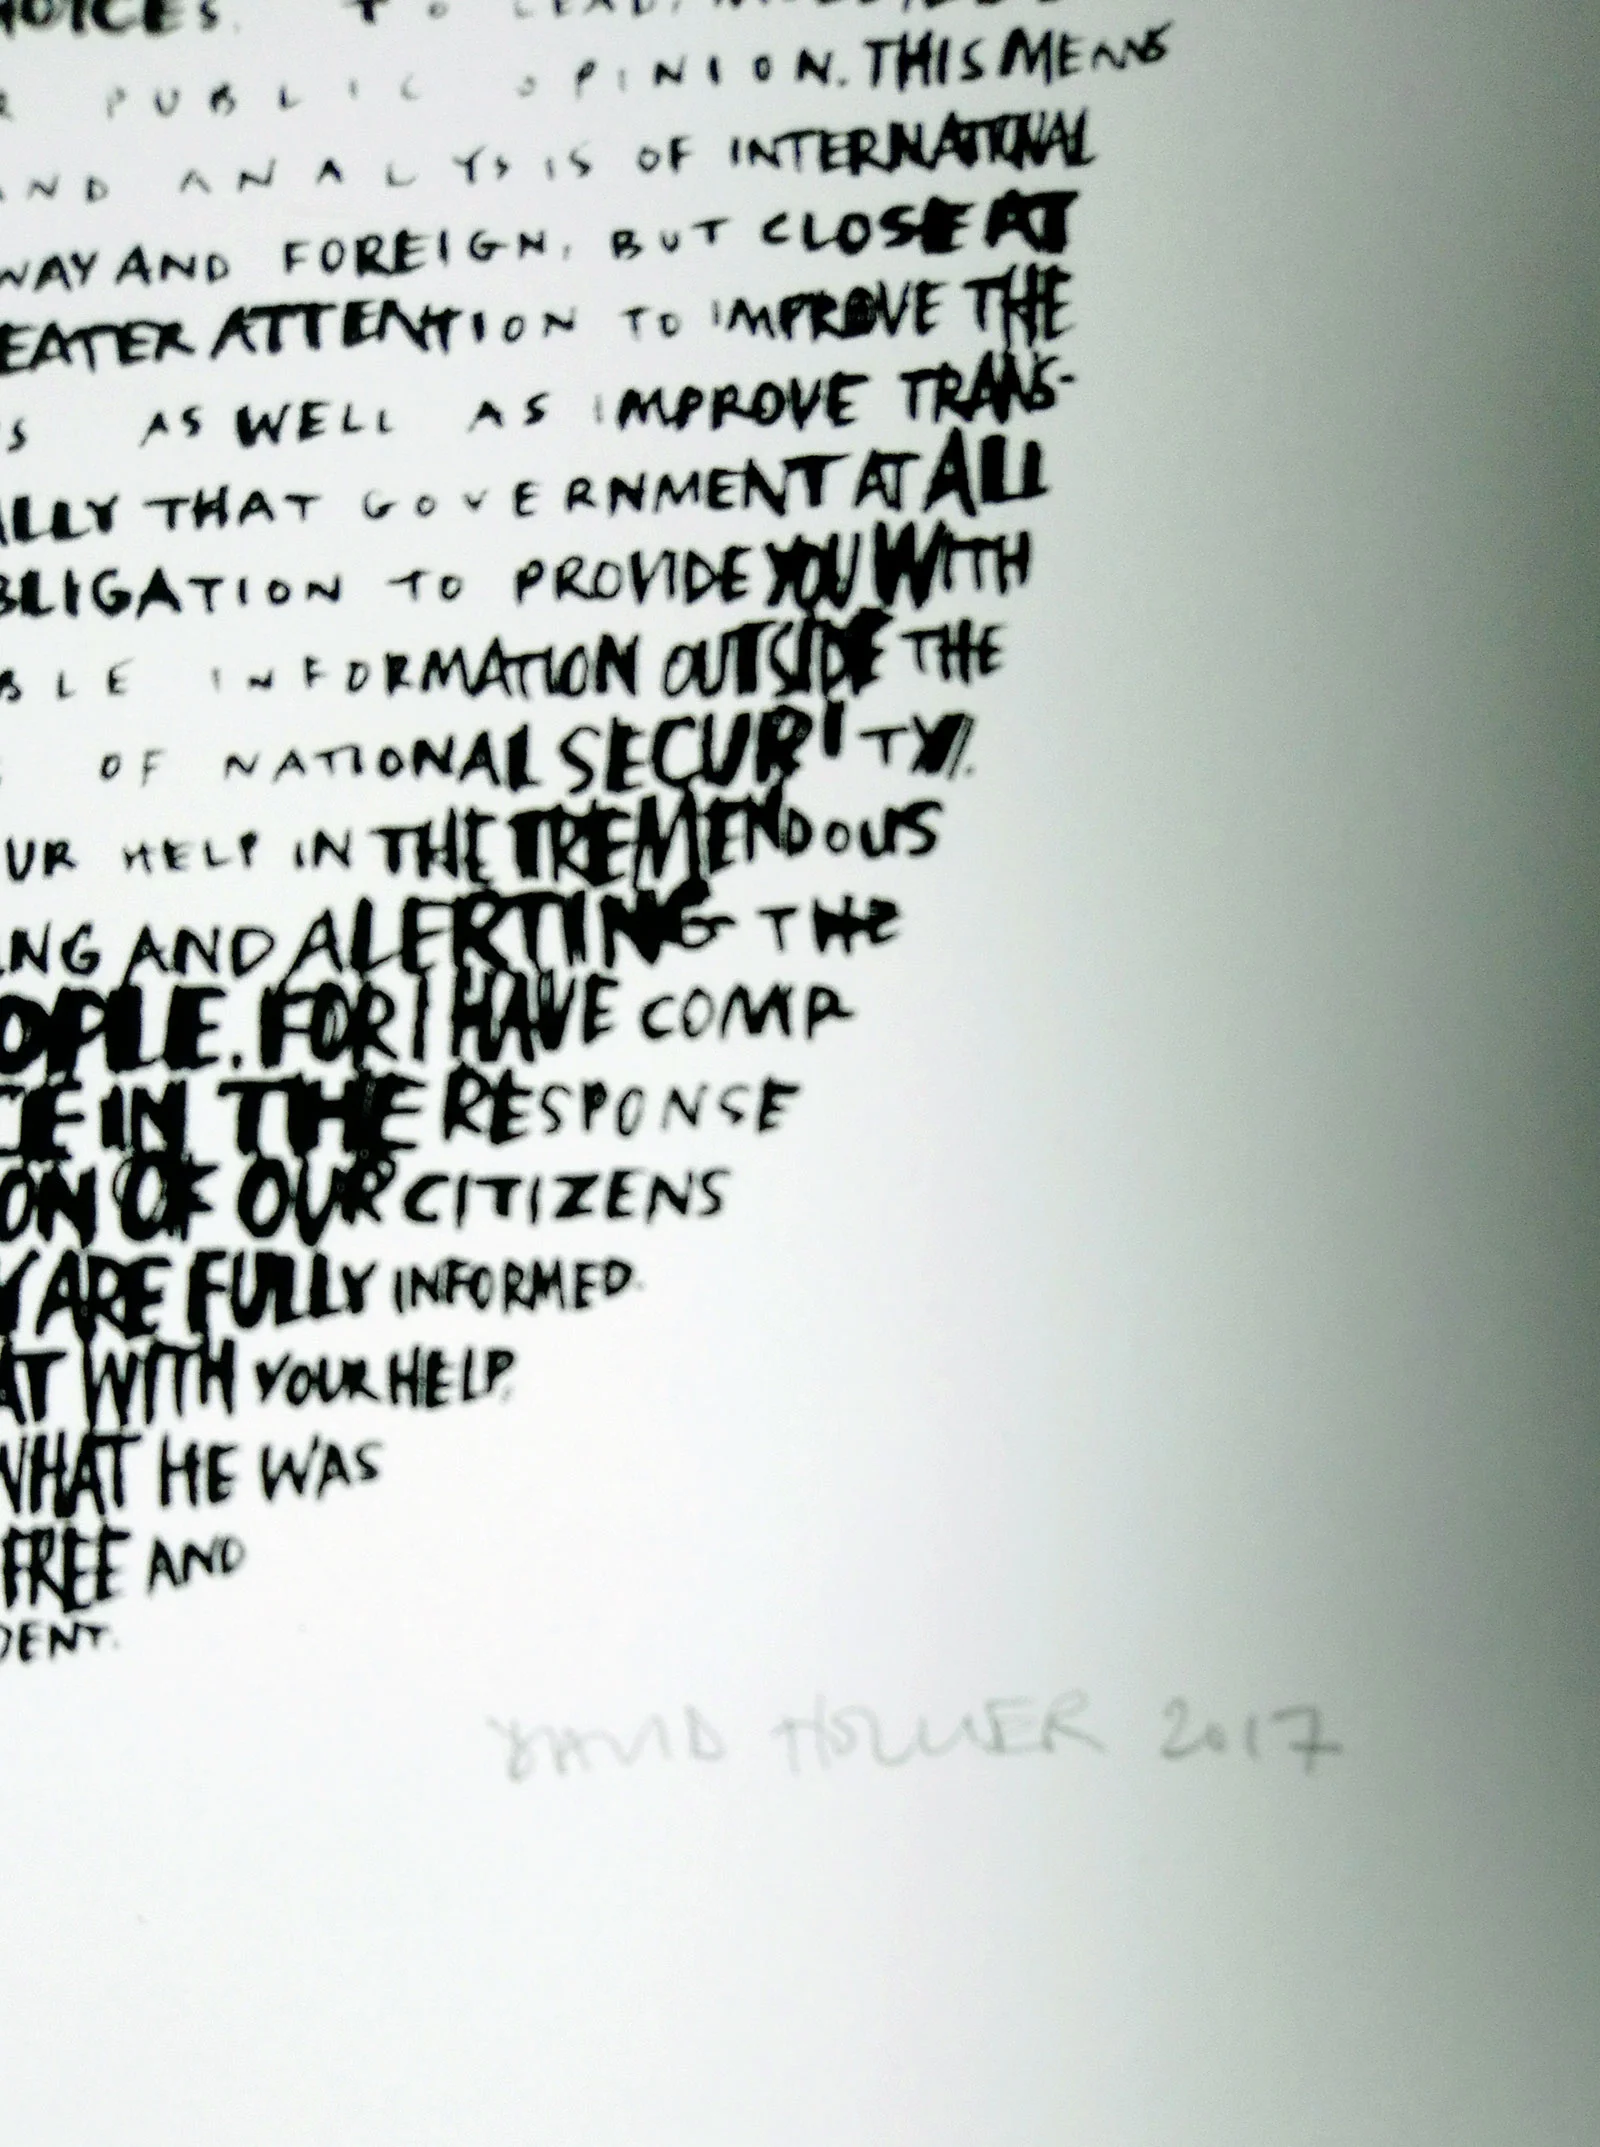 CHOICES. TO LEAD,
PUBLIC OPINION. THIS MEANS
AND ANALYSIS OF INTERNATIONAL
WAY AND FOREIGN, BUT CLOSE AT
EATER ATTENTION TO IMPROVE THE
S AS WELL AS IMPROVE TRANS-
ALLY THAT GOVERNMENT AT ALL
BLIGATION TO PROVIDE YOU WITH
BLE INFORMATION OUTSIDE THE
OF NATIONAL SECURITY.
UR HELP IN THE TREMENDOUS
ING AND ALERTING THE
OPLE. FOR I HAVE COMP
CE IN THE RESPONSE
ON OF OUR CITIZENS
Y ARE FULLY INFORMED.
AT WITH YOUR HELP,
WHAT HE WAS
FREE AND
DENT.
DAVID HOLLIER 2017